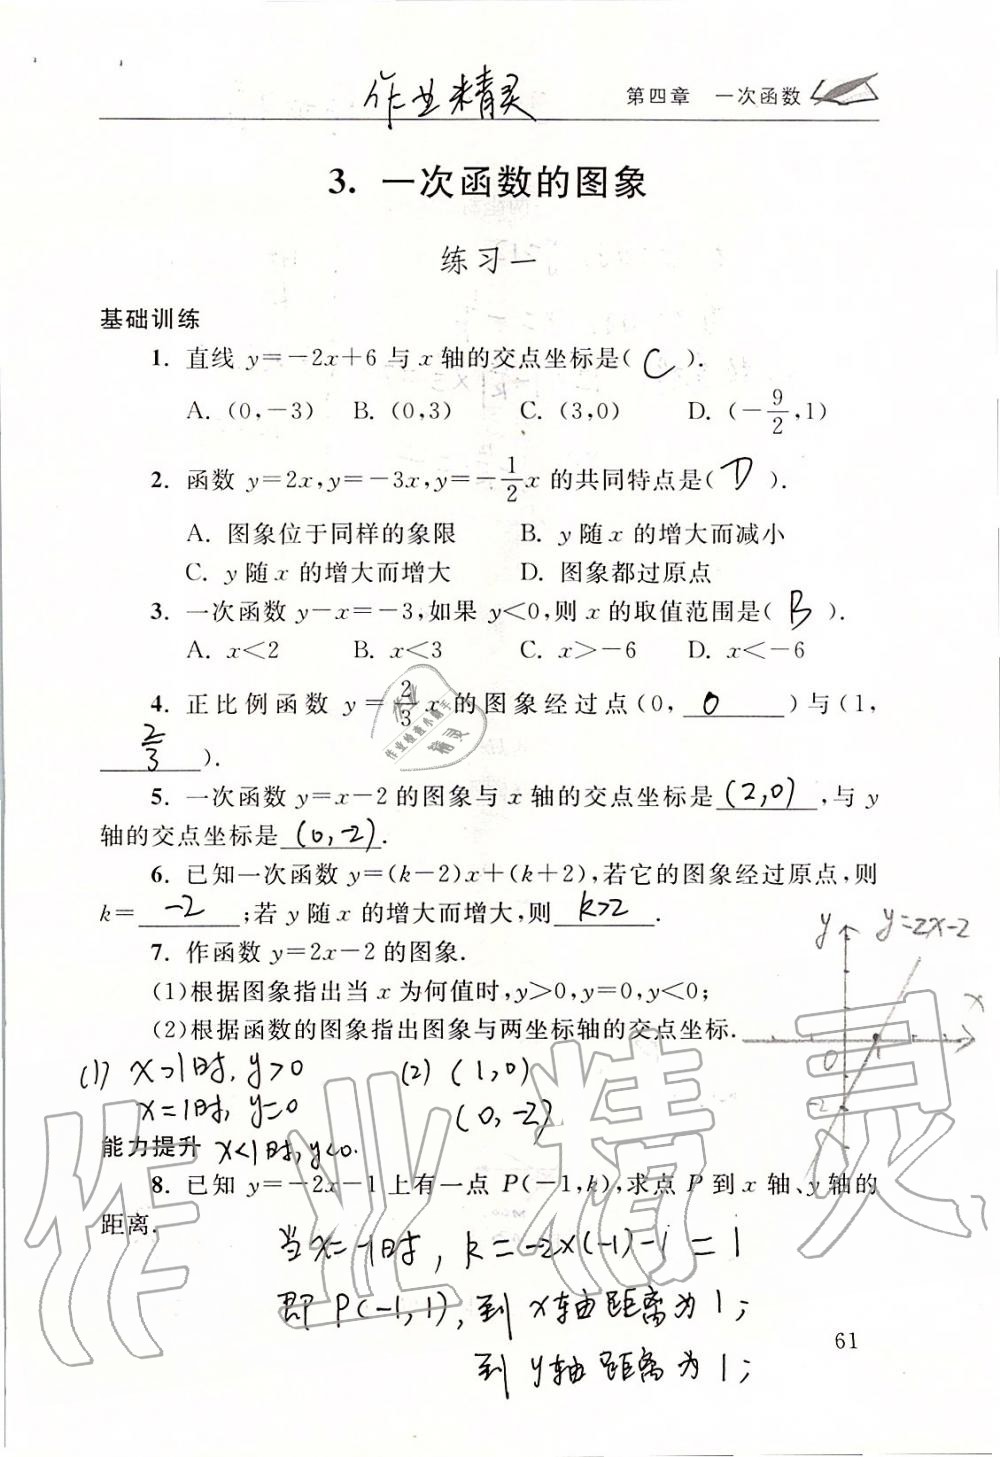 作业精灵
第四章 一次函数
3. 一次函数的图象
练习一
基础训练
1. 直线 y=-2x+6 与 x 轴的交点坐标是( C ).
A. (0,-3) B. (0,3) C. (3,0) D. (-9/2,1)
2. 函数 y=2x,y=-3x,y=-1/2x 的共同特点是( D ).
A. 图象位于同样的象限 B. y 随 x 的增大而减小
C. y 随 x 的增大而增大 D. 图象都过原点
3. 一次函数 y-x=-3,如果 y<0,则 x 的取值范围是( B ).
A. x<2 B. x<3 C. x>-6 D. x<-6
4. 正比例函数 y=2/3x 的图象经过点(0, 0 )与(1,
2/3 ).
5. 一次函数 y=x-2 的图象与 x 轴的交点坐标是 (2,0) ,与 y
轴的交点坐标是 (0,-2).
6. 已知一次函数 y=(k-2)x+(k+2),若它的图象经过原点,则
k= -2 ;若 y 随 x 的增大而增大,则 k>2 .
7. 作函数 y=2x-2 的图象.
(1)根据图象指出当 x 为何值时,y>0,y=0,y<0;
(2)根据函数的图象指出图象与两坐标轴的交点坐标.
y y=2x-2
x
0 1
-2
(1) x>1时, y>0 (2) (1,0)
x=1时, y=0 (0,-2)
能力提升 x<1时,y<0.
8. 已知 y=-2x-1 上有一点 P(-1,k),求点 P 到 x 轴、y 轴的
距离.
当x=-1时, k=-2×(-1)-1=1
即 P(-1,1), 到 x轴距离为1;
到 y轴距离为1;
61
作业精灵
作业
作业检查小助手
精灵